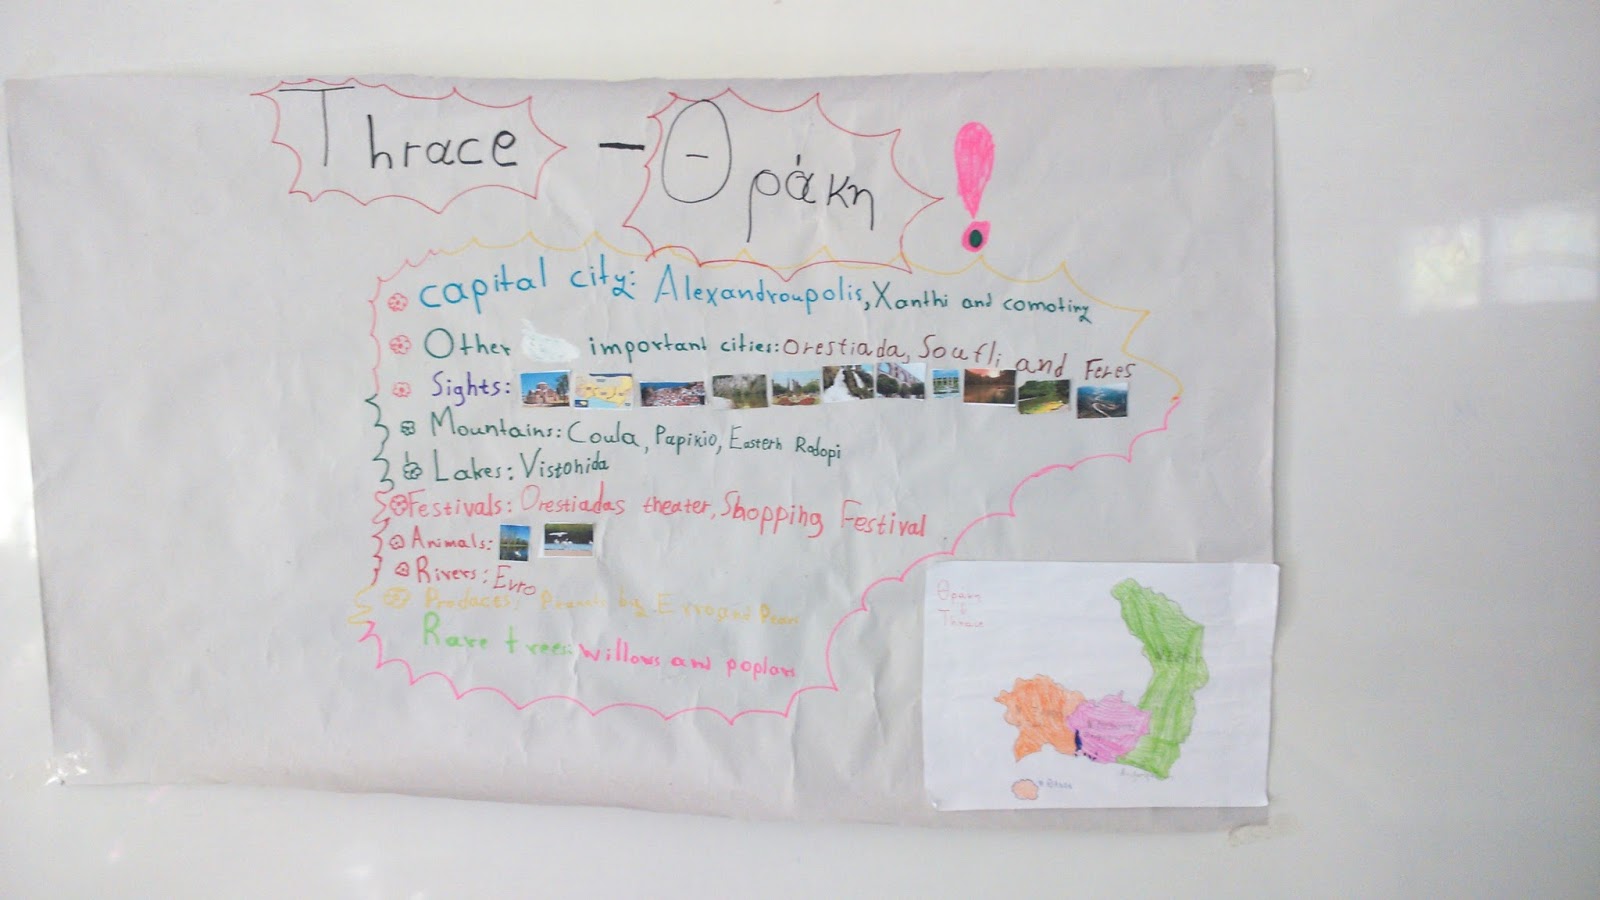 Thrace - Θράκη !
capital city: Alexandroupolis, Xanthi and comotiny
Other important cities: Orestiada, Soufli and Feres
Sights:
Mountains: Coula, Papikio, Eastern Rodopi
Lakes: Vistohida
Festivals: Orestiadas theater, Shopping Festival
Animals:
Rivers: Evro
Produces: by Evro and
Rare trees: willows and poplars
Θρακη
&
Thrace